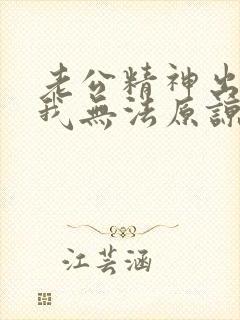 老公精神出
我無法原諒
江芸涵